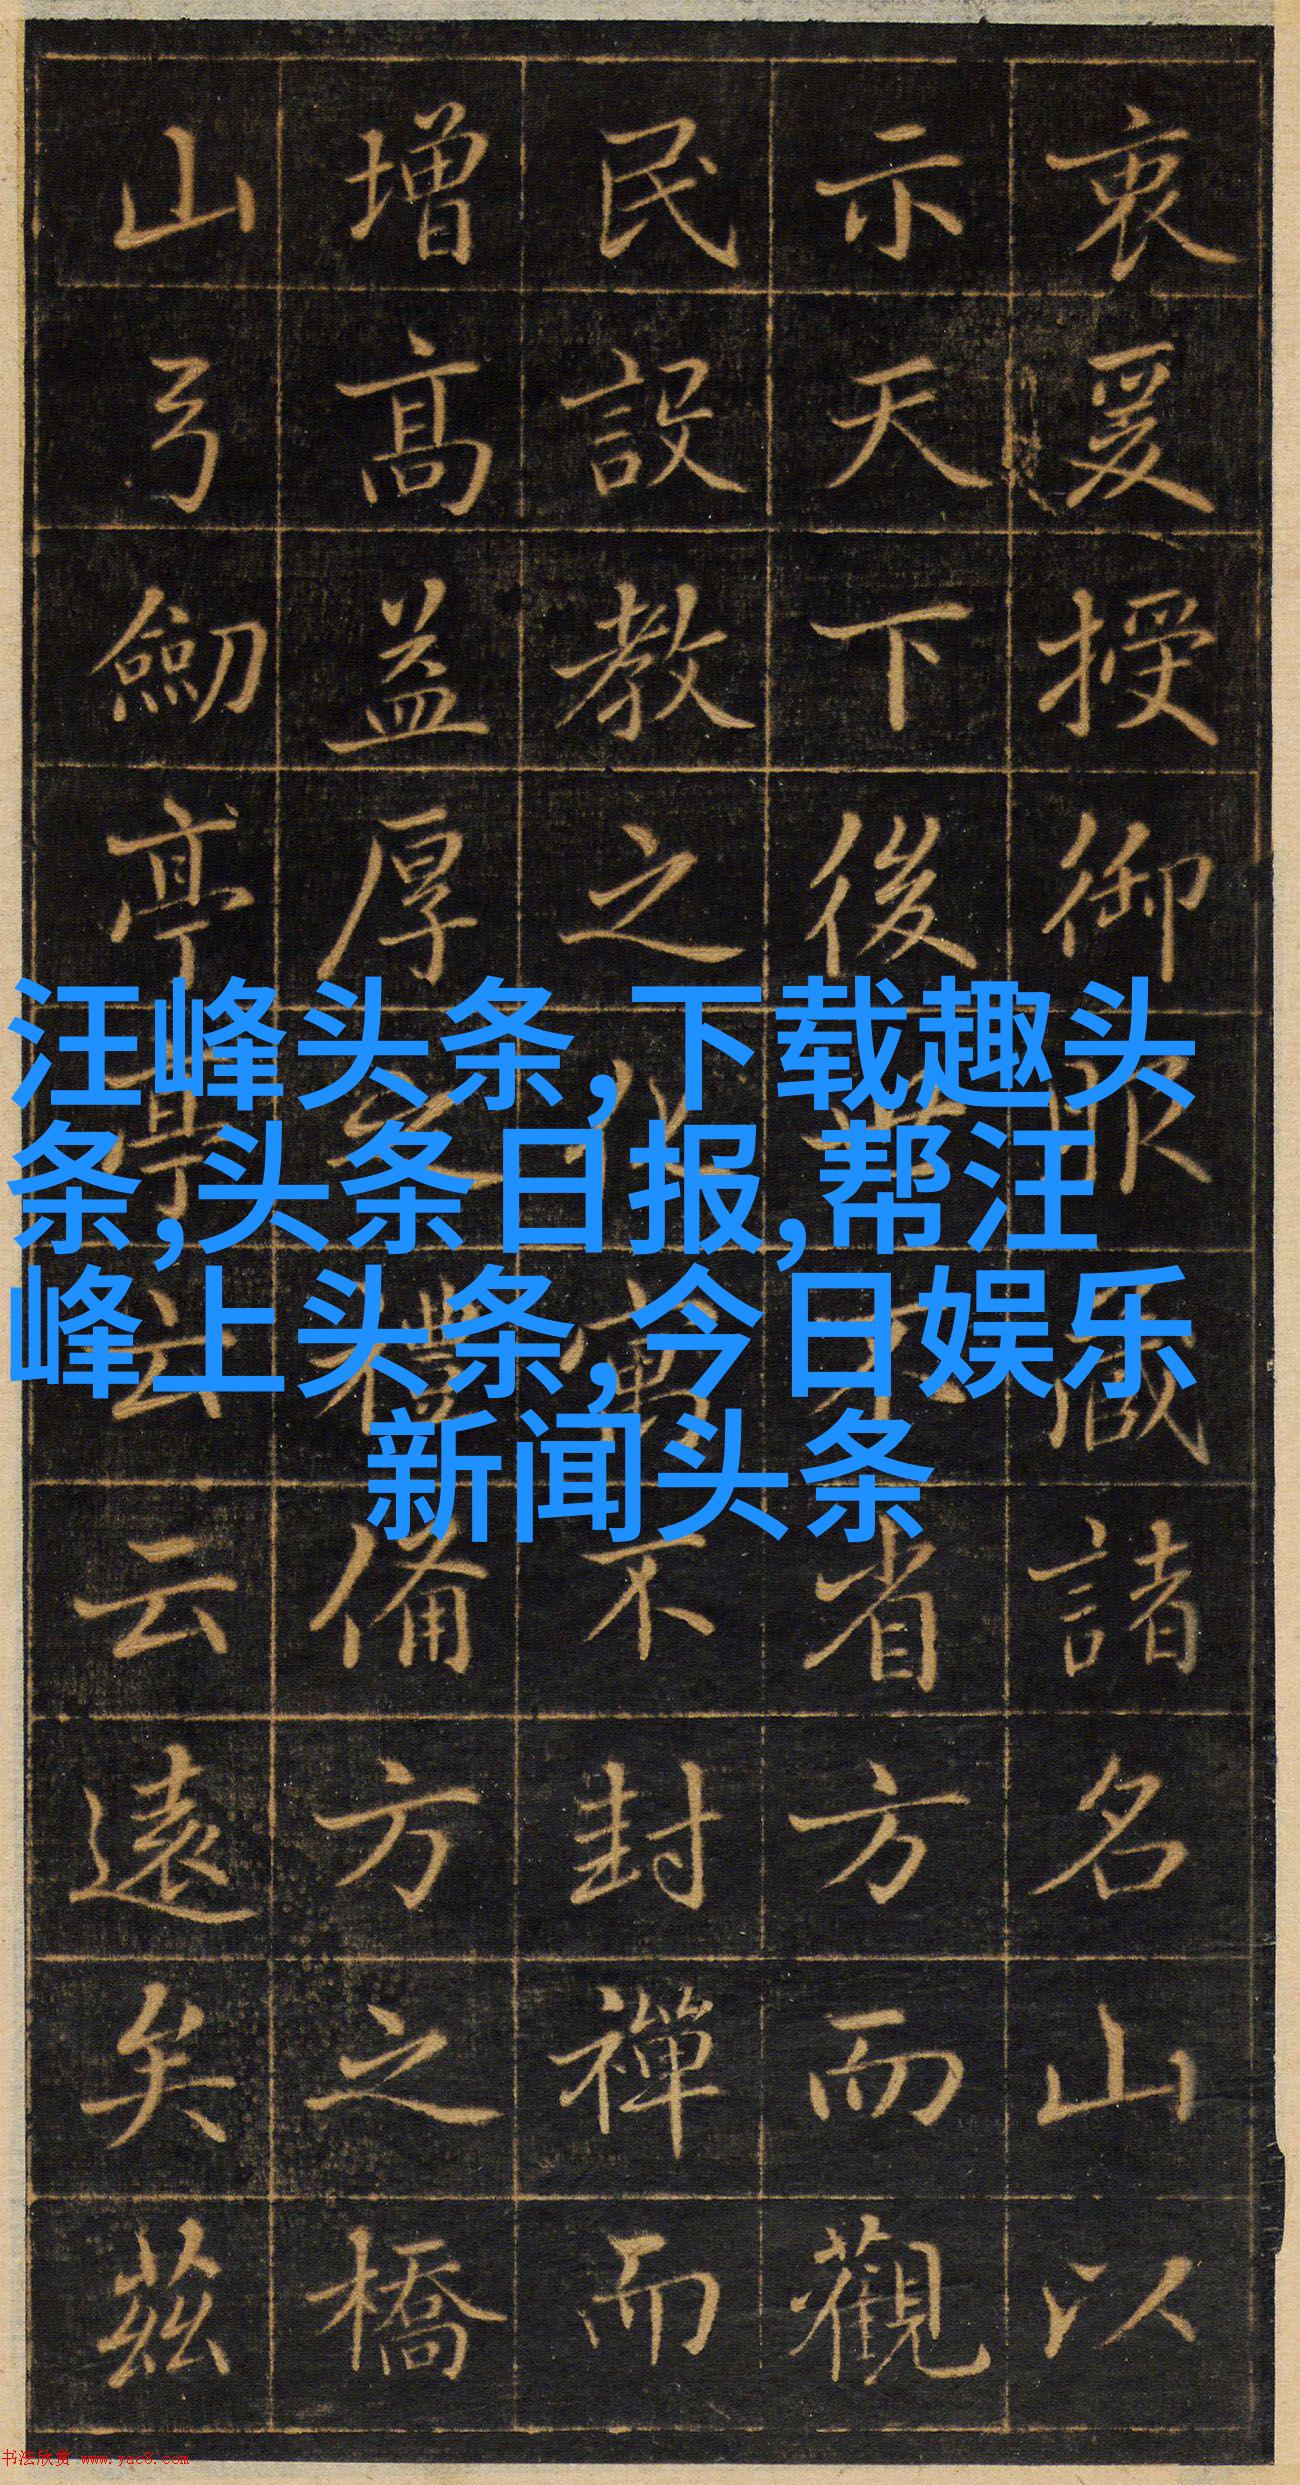 衷爰授御藏諸名山以
示天下後世省方而觀
民設教之不封禪而
增高益厚之禮備方之橋
山弓劒亭亭云云遠矣茲
汪峰头条,下载趣头
条,头条日报,帮汪
峰上头条,今日娱乐
新闻头条
书法欣赏 www.yac8.com